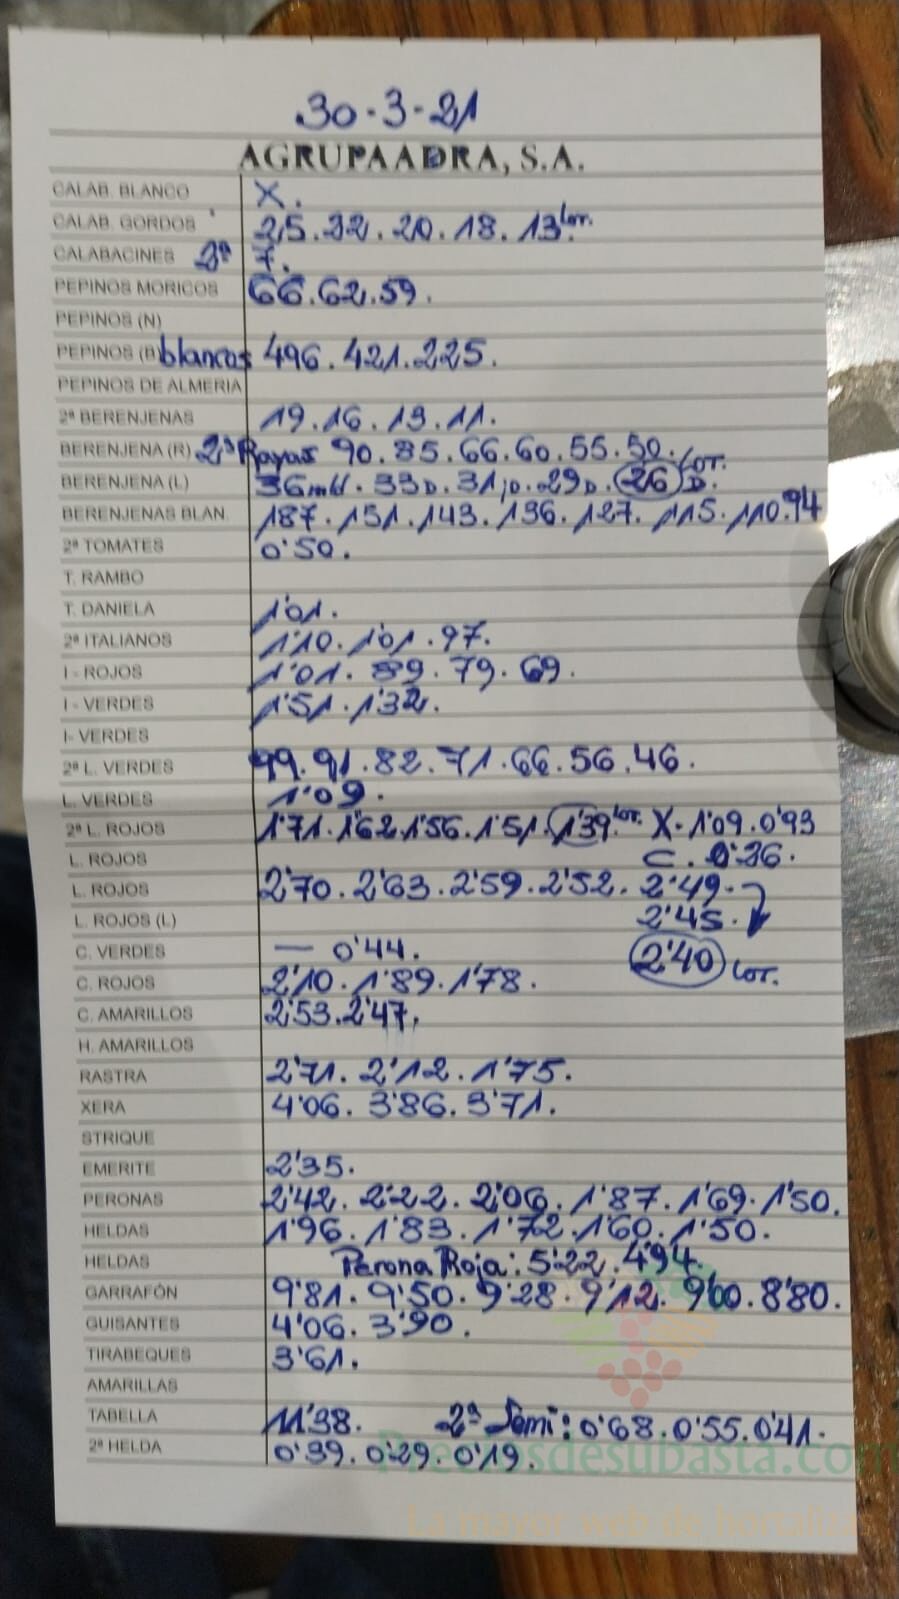 30-3-21
AGRUPAADRA, S.A.
CALAB. BLANCO X.
CALAB. GORDOS 25.22.20.18.13 Cor.
CALABACINES 2ª 7.
PEPINOS MORICOS 66.62.59.
PEPINOS (N)
PEPINOS (B) blancos 496.421.225.
PEPINOS DE ALMERIA
2ª BERENJENAS 19.16.13.11.
BERENJENA (R) 2ª Rayas 90.85.66.60.55.50. Cor.
BERENJENA (L) 36 . 33D. 31 . 29D. 26 D.
BERENJENAS BLAN. 187.151.143.136.127.115.110.94
2ª TOMATES 0'50.
T. RAMBO
T. DANIELA 1'01.
2ª ITALIANOS 1'10.1'01.97.
I - ROJOS 1'01.89.79.69.
I - VERDES 1'51.1'32.
I- VERDES
2ª L. VERDES 99.91.82.71.66.56.46.
L. VERDES 1'09.
2ª L. ROJOS 1'71.1'62.1'56.1'51.1'39 Cor. X-1'09.0'93
L. ROJOS C. 0'36.
L. ROJOS 2'70.2'63.2'59.2'52. 2'49.
L. ROJOS (L) 2'45.
C. VERDES — 0'44. 2'40 Cor.
C. ROJOS 2'10.1'89.1'78.
C. AMARILLOS 2'53.2'47.
H. AMARILLOS
RASTRA 2'71.2'12.1'75.
XERA 4'06.3'86.3'71.
STRIQUE
EMERITE 2'35.
PERONAS 2'42.2'22.2'06.1'87.1'69.1'50.
HELDAS 1'96.1'83.1'72.1'60.1'50.
HELDAS Perona Roja: 5'22.4'94.
GARRAFÓN 9'81.9'50.9'28.9'12.9'00.8'80.
GUISANTES 4'06.3'90.
TIRABEQUES 3'61.
AMARILLAS
TABELLA 11'38. 2ª Semi: 0'68.0'55.0'41.
2ª HELDA 0'39.0'29.0'19.
Preciosdesubasta.com
La mayor web de hortaliza